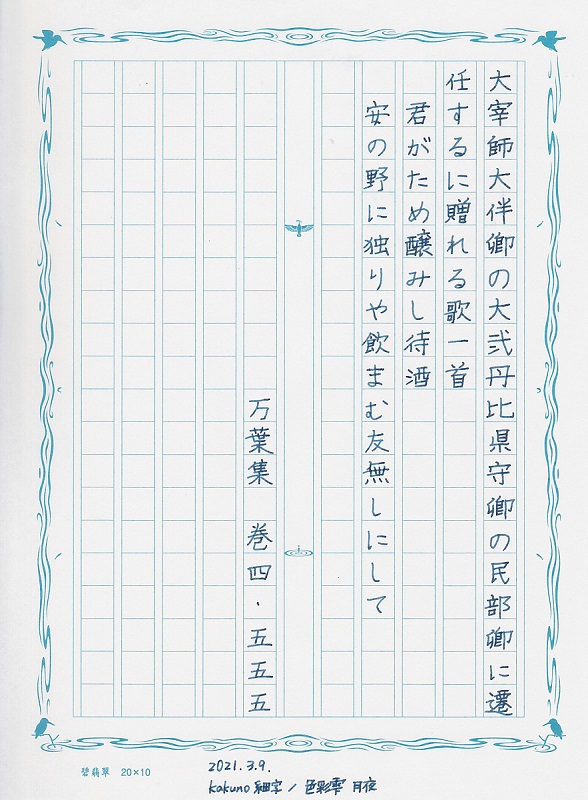 大宰師大伴卿の大弐丹比県守卿の民部卿に遷
任するに贈れる歌一首
君がため醸みし待酒
安の野に独りや飲まむ友無しにして
万葉集 巻四・五五五
碧翡翠 20×10
2021.3.9.
kakuno 細字 / 色彩雫 月夜